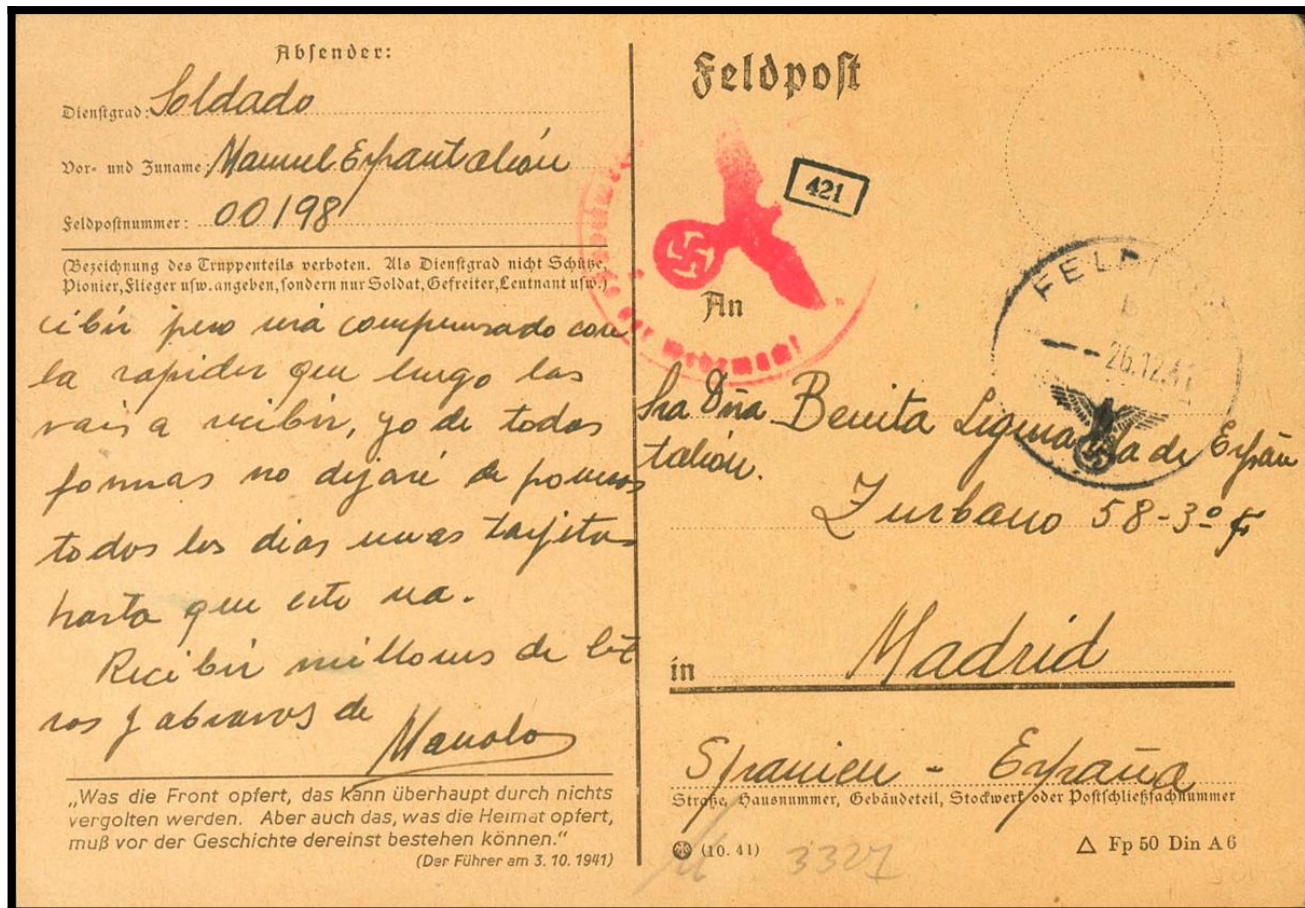 Absender:
Dienstgrad: Soldado
Vor- und Zuname: Manuel Espantaleón
Feldpostnummer: 00198
(Bezeichnung des Truppenteils verboten. Als Dienstgrad nicht Schütze,
Pionier, Flieger usw. angeben, sondern nur Soldat, Gefreiter, Leutnant usw.)
cibir pero será compensado con
la rapidez que luego las
vais a recibir, yo de todas
formas no dejaré de poneros
todos los dias unas tarjitas
hasta que este sea.
Recibir millones de bes
sos y abrazos de
Manolo
„Was die Front opfert, das kann überhaupt durch nichts
vergolten werden. Aber auch das, was die Heimat opfert,
muß vor der Geschichte dereinst bestehen können.“
(Der Führer am 3. 10. 1941)
Feldpost
421
der Wehrmacht
An
FELDPOST
b
26.12.41
Sra Dña Benita de Espan
taleón.
Zurbano 58-3º
in Madrid
Spanien - España
Straße, Hausnummer, Gebäudeteil, Stockwerk oder Postschließfachnummer
(10. 41)
3327
△ Fp 50 Din A 6